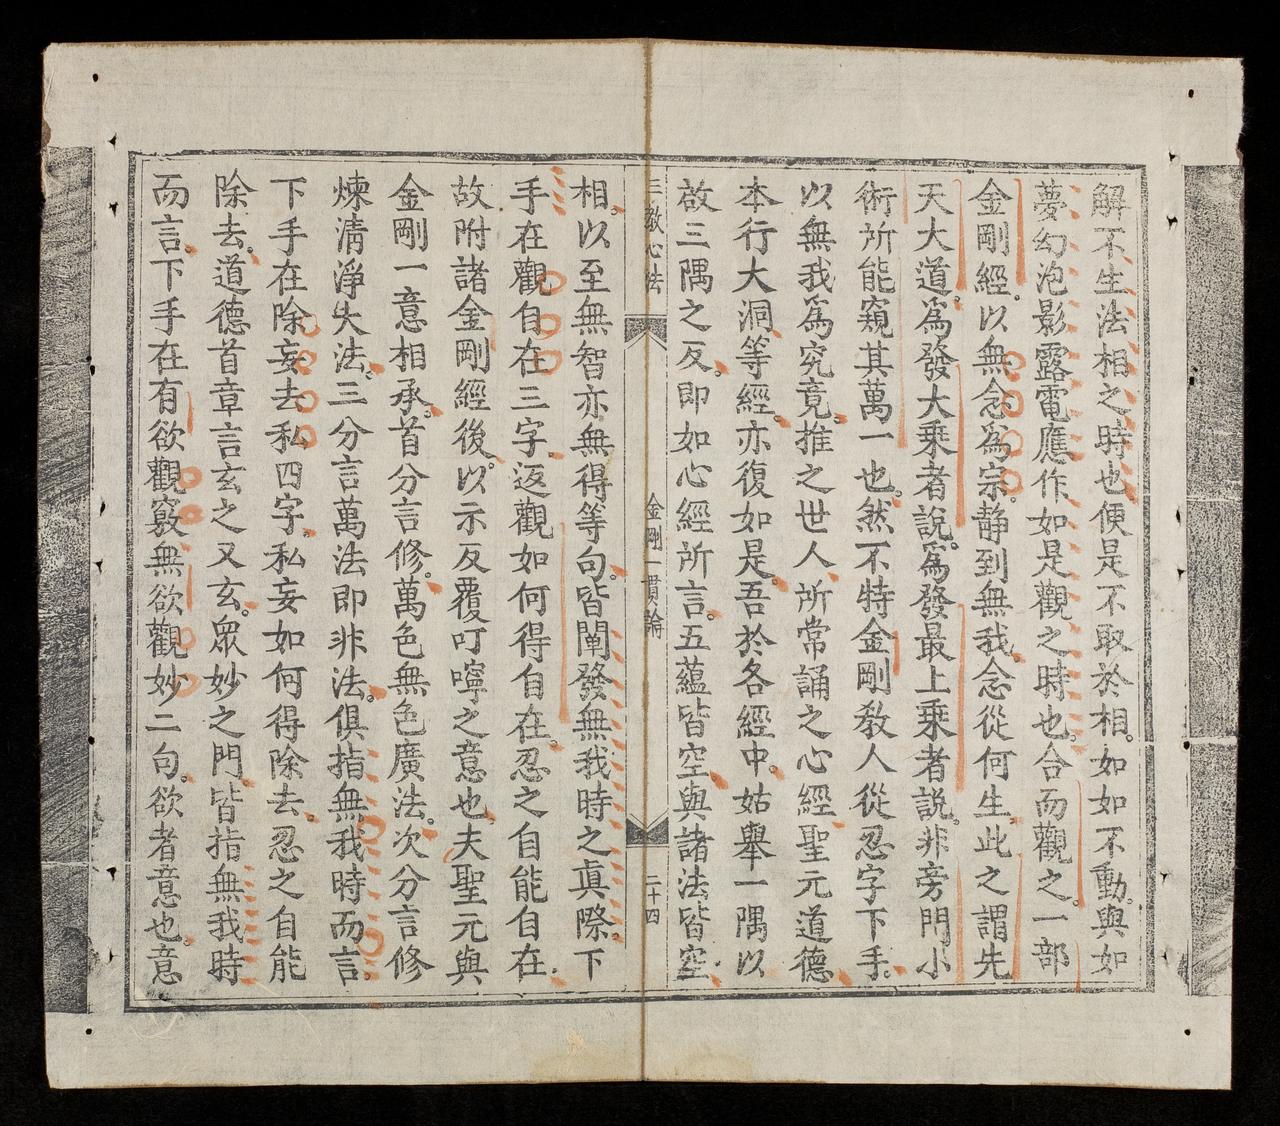 解不生法相之時也便是不取於相。如如不動。與如
夢幻泡影露電應作如是觀之時也。合而觀之。一部
金剛經。以無念為宗。静到無我。念從何生。此之謂先
天大道。為發大乘者說。為發最上乘者說。非旁門小
術所能窺其萬一也。然不特金剛教人從忍字下手。
以無我為究竟。推之世人所常誦之心經聖元道德
本行大洞等經。亦復如是。吾於各經中。姑舉一隅以
故三隅之反。即如心經所言。五蘊皆空與諸法皆空
三教心法
金剛一貫論
二十四
相。以至無智亦無得等句。皆闡發無我時之真際。下
手在觀自在三字。返觀如何得自在。忍之自能自在。
故附諸金剛經後。以示反覆叮嚀之意也。夫聖元與
金剛一意相承。首分言修。萬色無色廣法。次分言修
煉清淨失法。三分言萬法即非法。俱指無我時而言。
下手在除妄去私四字。私妄如何得除去。忍之自能
除去。道德首章言玄之又玄。眾妙之門。皆指無我時
而言。下手在有欲觀竅無欲觀妙二句。欲者意也。意